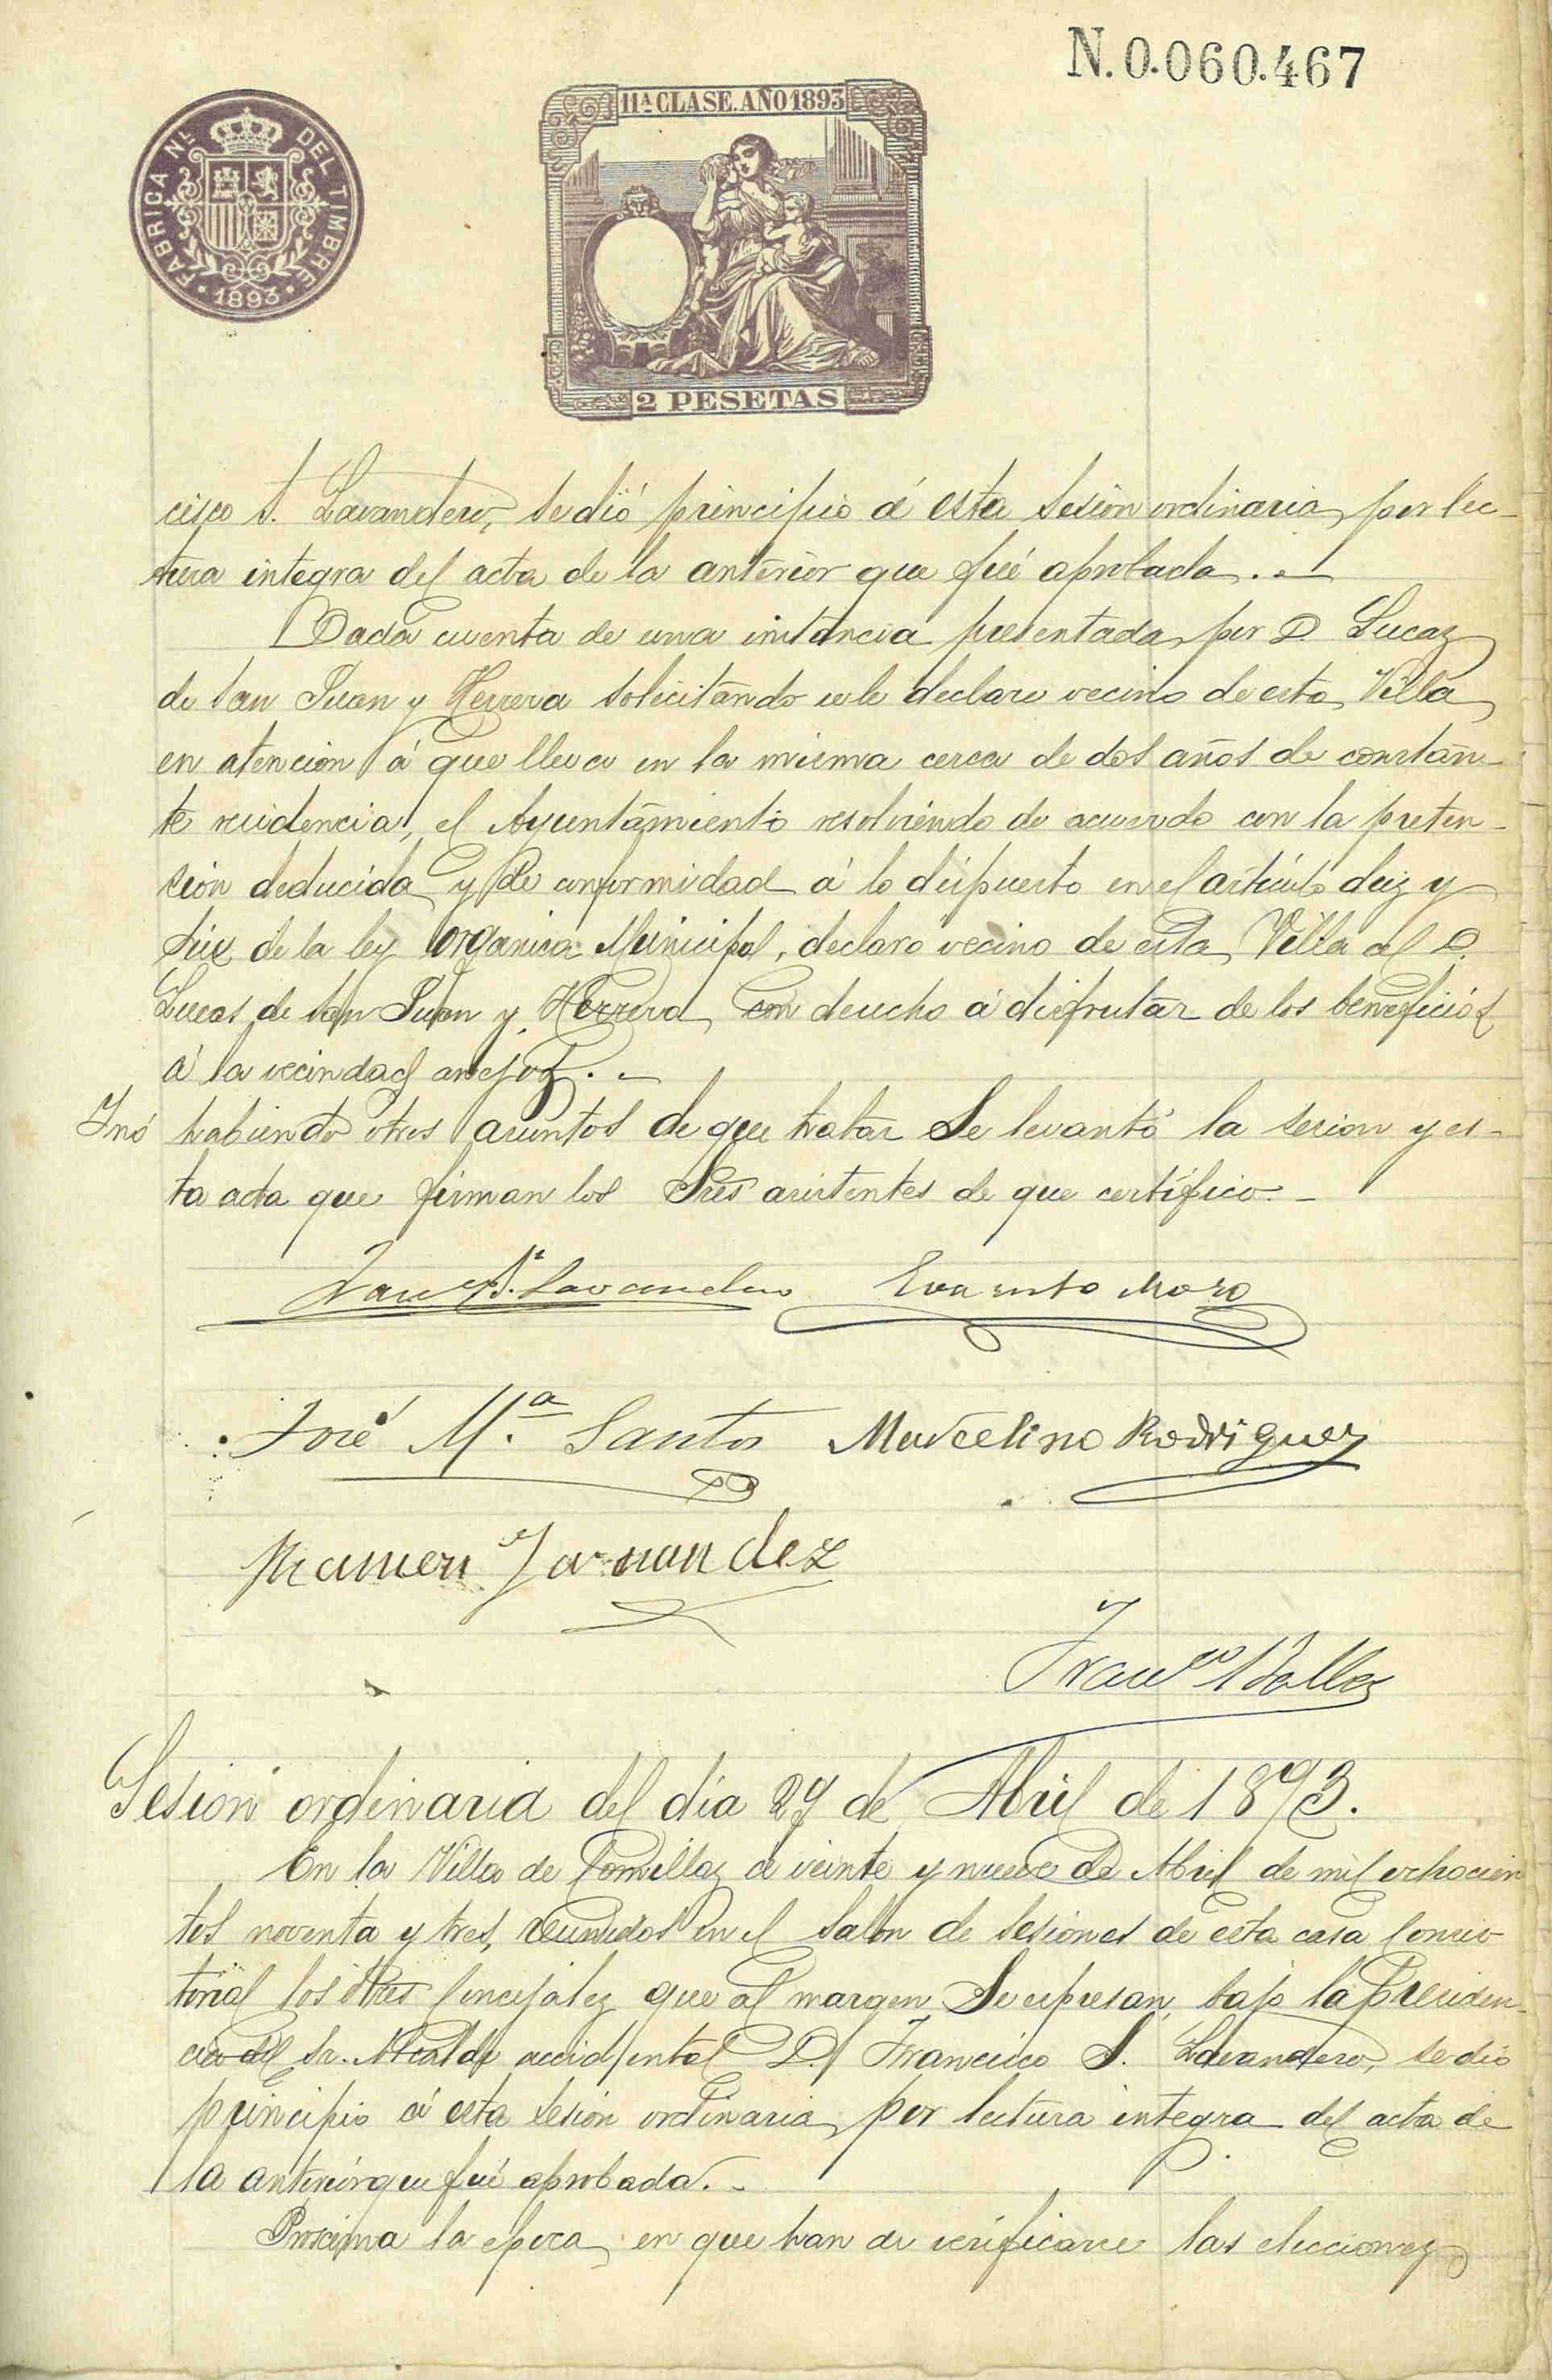 N.0.060.467
11ª CLASE. AÑO 1893
FABRICA NL. DEL TIMBRE
· 1893 ·
2 PESETAS
cisco S. Lavandero, se dió principio á esta sesión ordinaria, por lec-
tura integra del acta de la anterior que fué aprobada. . –
Dada cuenta de una instancia presentada por D. Lucas
de San Juan y Herrera solicitando se le declare vecino de esta Villa
en atencion á que lleva en la misma cerca de dos años de constan-
te residencia, el Ayuntamiento resolviendo de acuerdo con la preten-
sión deducida y de conformidad á lo dispuesto en el artículo diez y
seis de la ley organica Municipal, declaro vecino de esta Villa al D.
Lucas de San Juan y Herrera con derecho á disfrutar de los beneficios
á la vecindad anejos. . –
Y no habiendo otros asuntos de que tratar se levantó la sesion y es-
ta acta que firman los Sres asistentes de que certifico. –
Franco S. Lavandero Evaristo Moro
José M.ª Santos Marcelino Rodriguez
Ramon Fernandez
Franco
Sesion ordinaria del día 29 de Abril de 1893.
En la Villa de Comillas á veinte y nueve de Abril de mil ochocien
tos noventa y tres, reunidos en el salon de sesiones de esta casa Consis-
torial los Sres Concejales que al margen se expresan, bajo la Presiden-
cia del Sr. Alcalde accidental D. Francisco S. Lavandero, se dió
principio á esta sesión ordinaria por lectura integra del acta de
la anterior que fué aprobada. . –
Proxima la epoca en que han de verificarse las elecciones